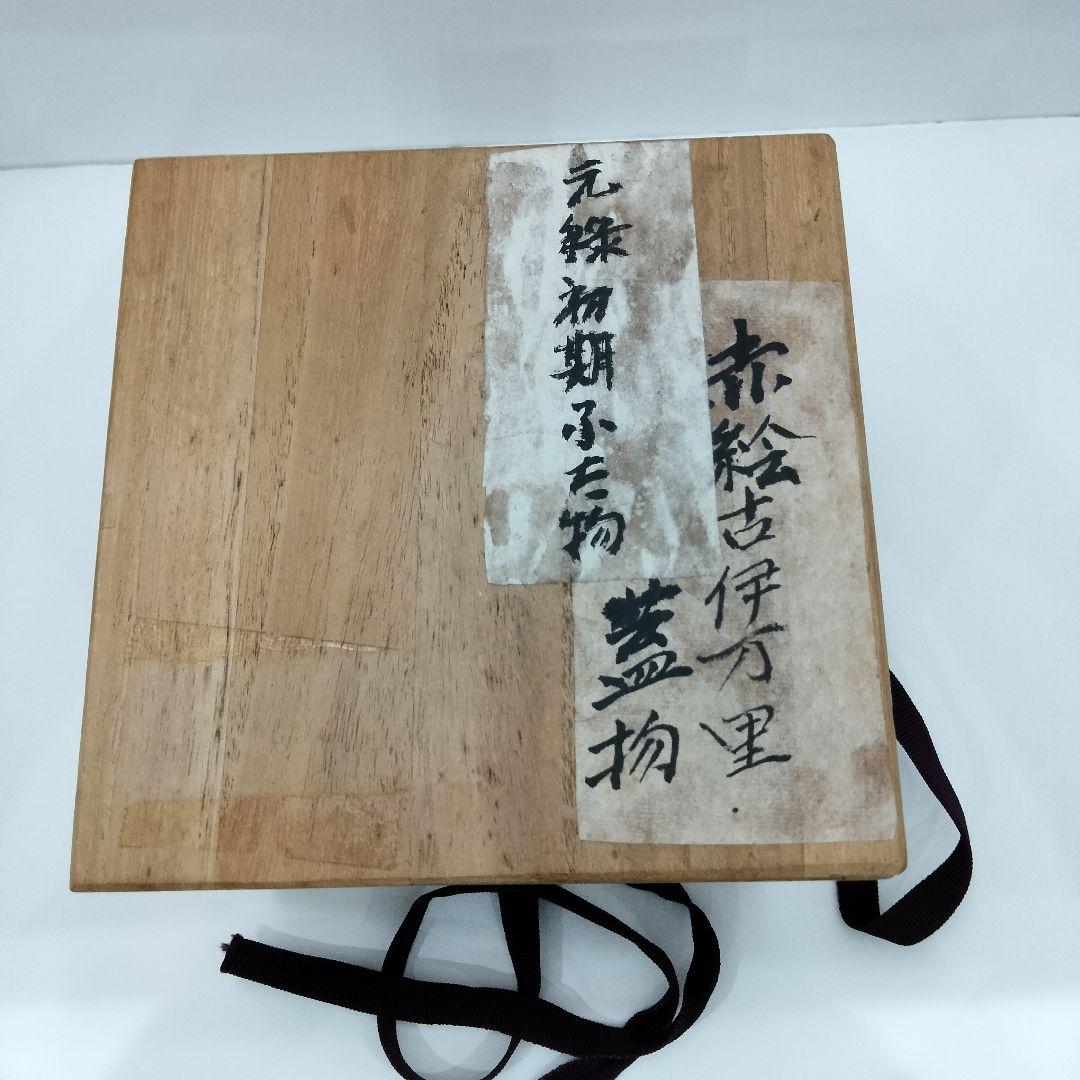 赤絵古伊万里
蓋物
元禄初期ふた物